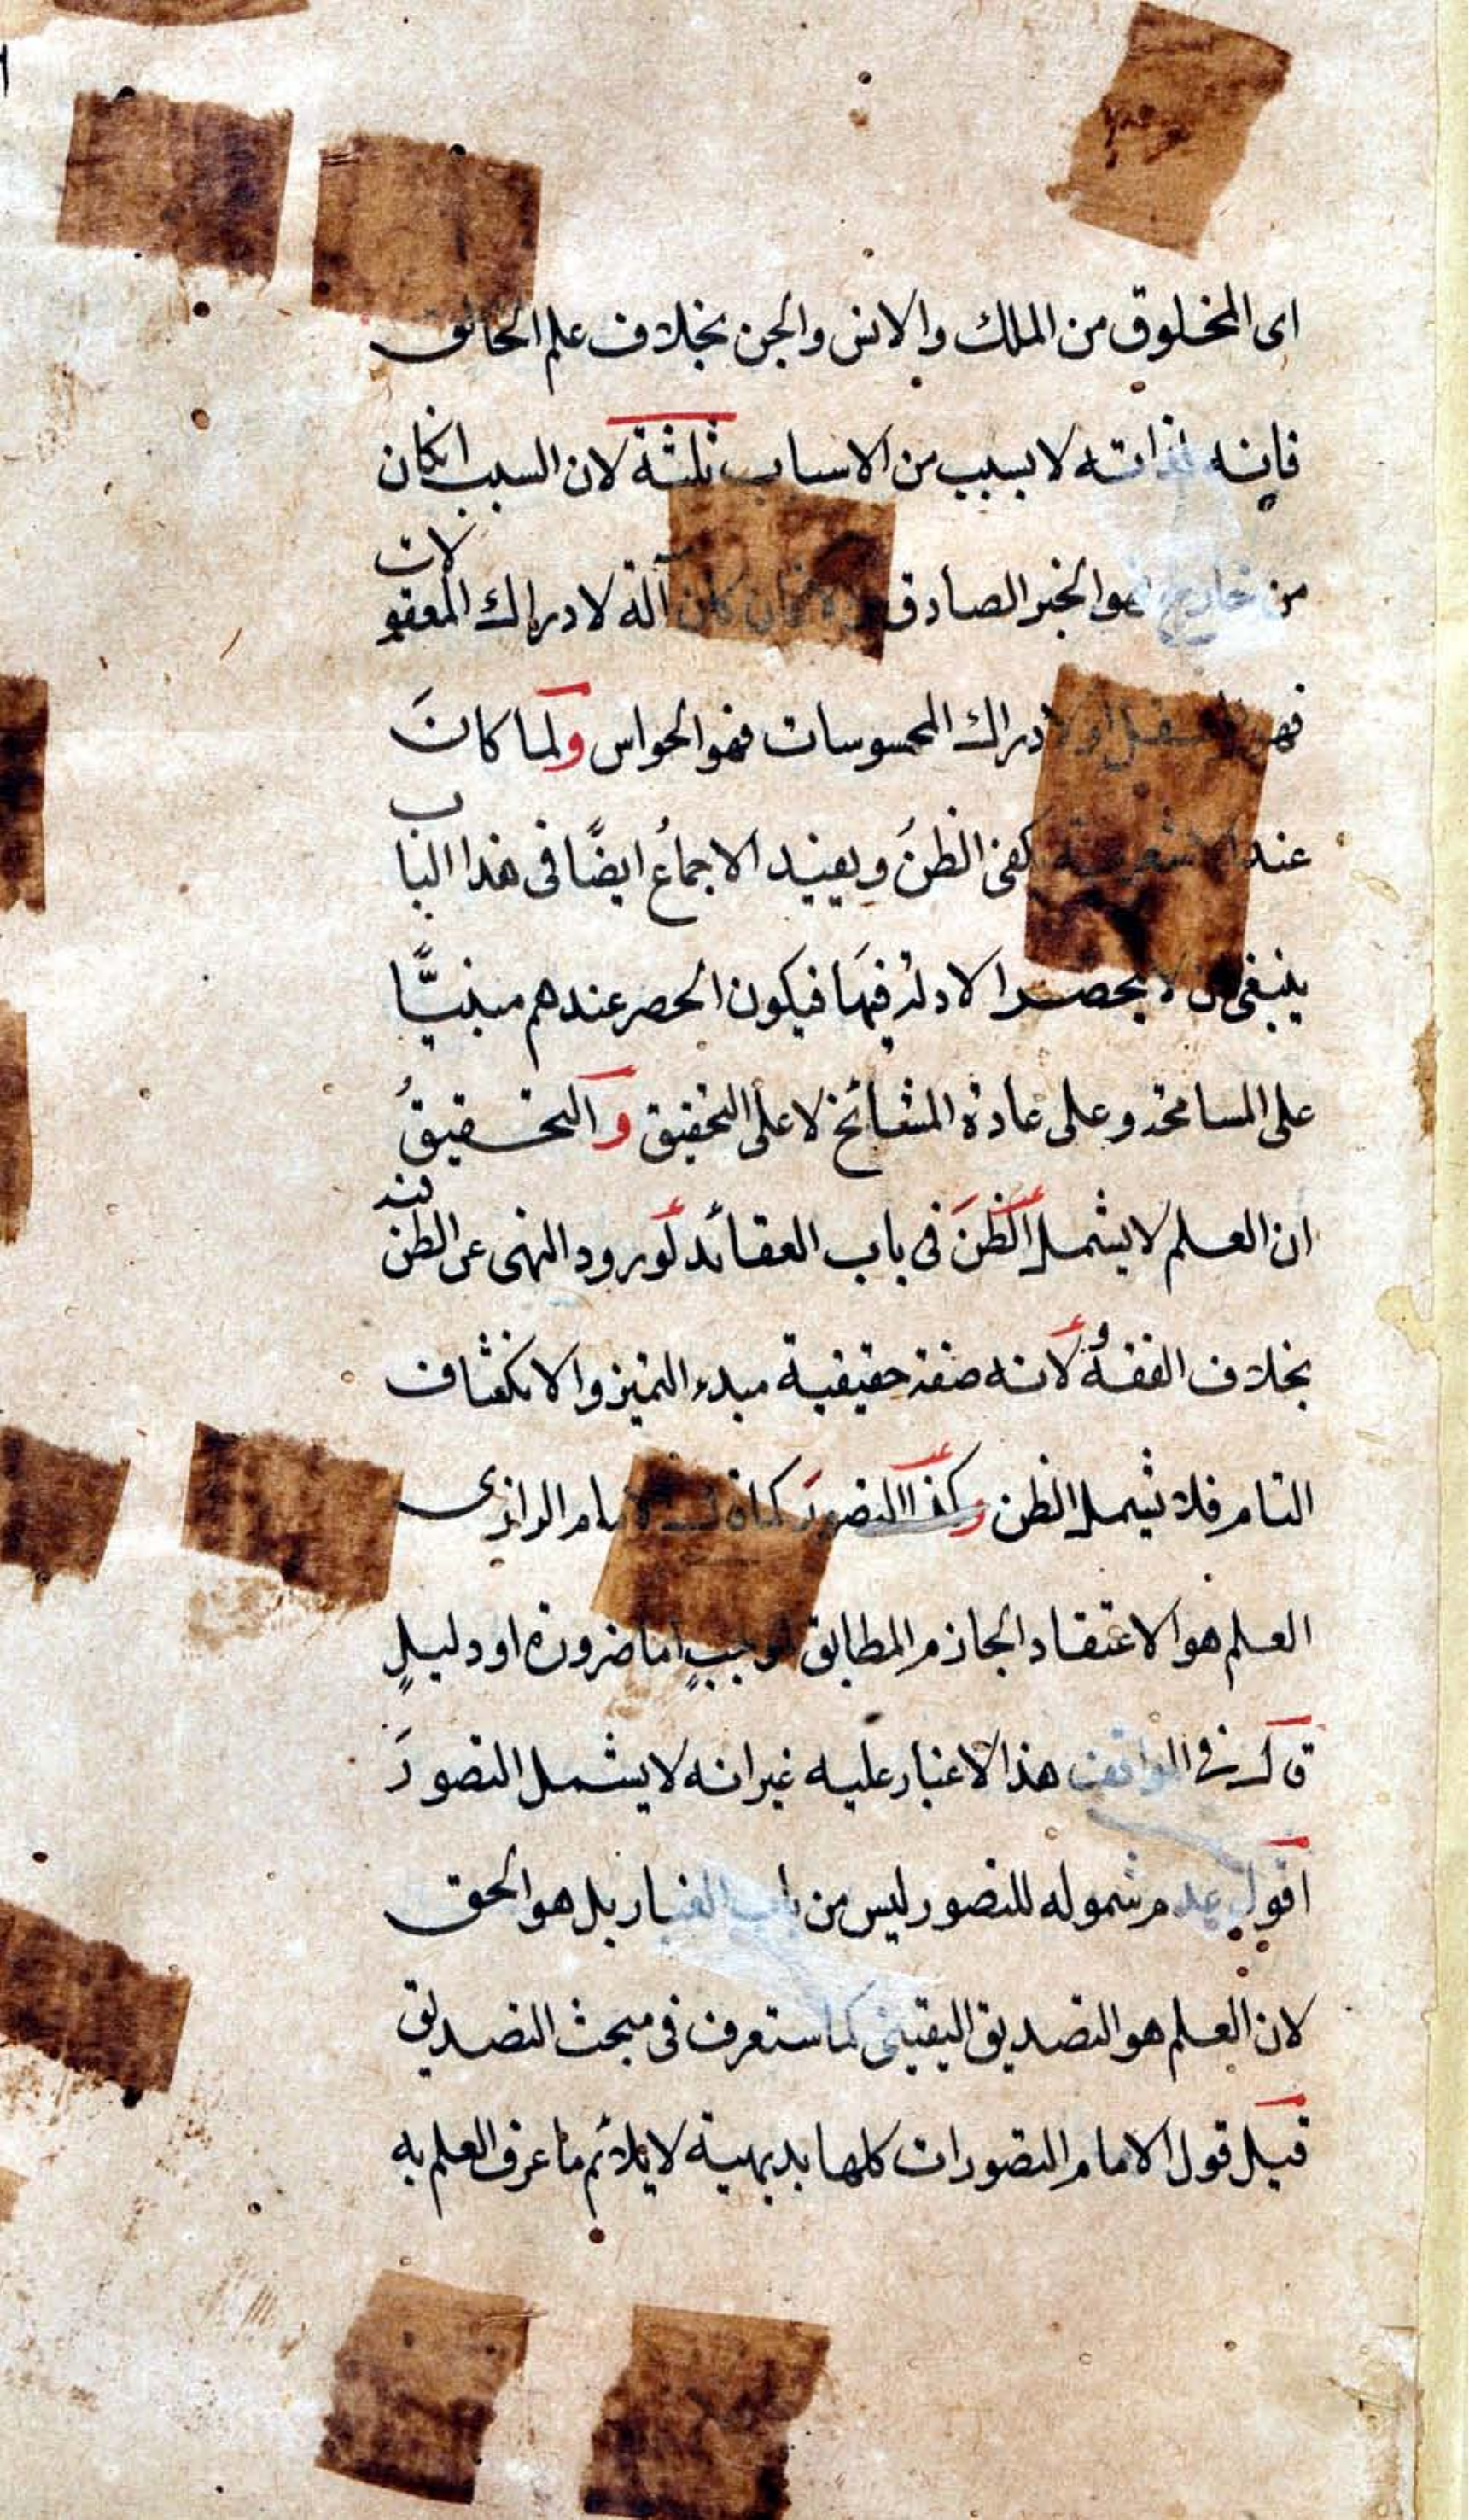 اى المخلوق من الملك والانس والجن بخلاف علم الخالق
فانه لذاته لا بسبب من الاسباب ثلثة لان السبب انكان
من خارج فهو الخبر الصادق والا فان كان آلة لادراك المعقولات
فهو العقل او لادراك المحسوسات فهو الحواس ولما كانَ
عند الاشعرية كفى الظنُ ويفيد الاجماعُ ايضًا فى هذا الباب
ينبغى ان لا يحصر الادلة فيها فيكون الحصر عندهم مبنيًّا
على المسامحة وعلى عادة المشائخ لا على التحقيق والتحقيقُ
ان العلم لا يشمل الظنَ فى باب العقائد لورود النهى عن الظن فيه
بخلاف الفقه لانه صفة حقيقية مبدء التميز والانكشاف
التام فلا يشمل الظن وكذا التصورَ كما ذكره الامام الرازى
العلم هو الاعتقاد الجازم المطابق لموجبٍ اما ضرورة او دليلٍ
قال فى المواقف هذا لا غبار عليه غير انه لا يشمل التصورَ
اقول عدم شموله للتصور ليس من باب الغبار بل هو الحق
لان العلم هو التصديق اليقينى كما ستعرف فى مبحث التصديق
قيل قول الامام التصورات كلها بديهية لا يلائم ما عرف العلم به